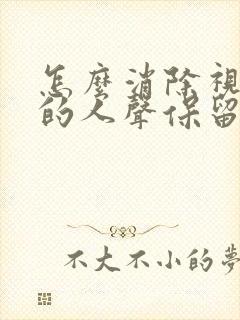 怎麼消除視
的人聲保留
不大不小的夢